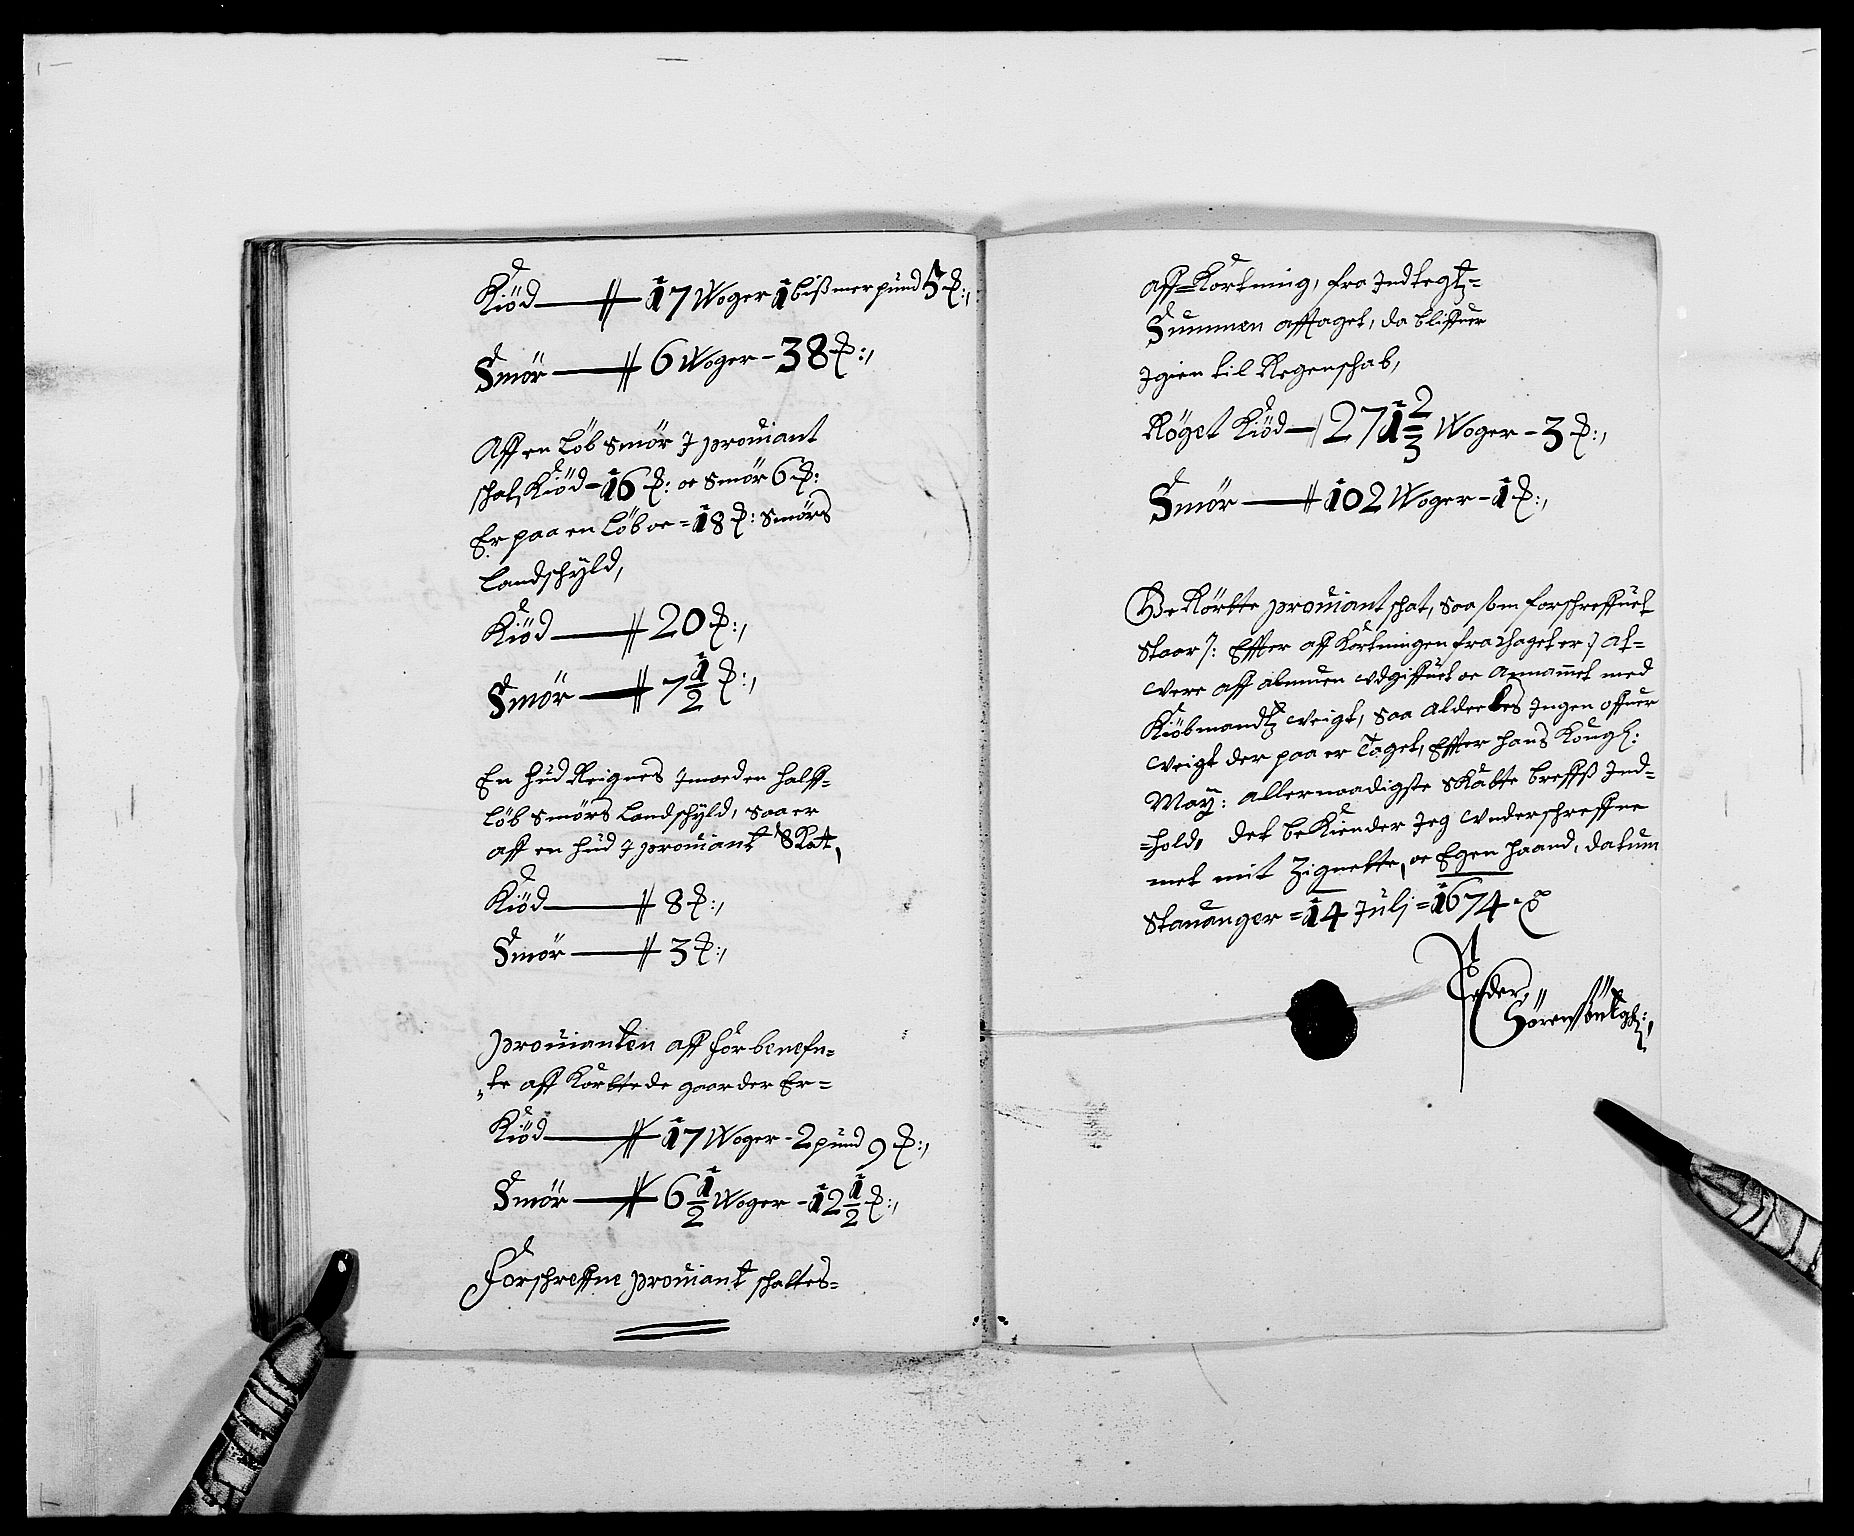 Kiöd — 17 Woger 1 bißmerpund 5 ℔:,
Smör — 6 Woger - 38 ℔:,
Aff en Löb Smör I prouiant
schat, Kiöd - 16 ℔: oc Smör 6 ℔:
Er paa en Löb oc = 18 ℔: Smörs
Landschÿld,
Kiöd — 20 ℔:,
Smör — 7 1/2 ℔:,
En Hud Reignes Imoed en halff-
Löb Smörs Landschÿld, Saa er
aff en hud I prouiant Skat,
Kiöd — 8 ℔:,
Smör — 3 ℔:,
Prouianten aff forbenefn-
te aff Kortede gaarder Er =
Kiöd — 17 Woger - 2 pund 9 ℔:,
Smör — 6 1/2 Woger - 12 1/2 ℔:,
Forschreffne prouiant schattes =
aff = Kortning, fra Indtegtz =
Summen afftaget, da bliffuer
Igien til Regenschab,
Röget Kiöd — 271 2/3 Woger - 3 ℔:,
Smör — 102 Woger - 1 ℔:,
BeRörtte prouiant schat, Saa som forschreffuet
Staar /: Effter aff Kortningen fra thaget er :/ at =
vere aff almuen vdgiffuet oc Annammet med
Kiöbmandtz veigt, Saa Alder Ingen offuer
veigt der paa er Taget, Effter hans Kongl:
Maÿ: allernaadigste Skatte breffß Ind =
= hold, det beKiender Jeg vnderschreffne
met mit Zignette, oc Egen haand, datum
Stauanger = 14 Julj = 1674 .
Peder
Sörensön